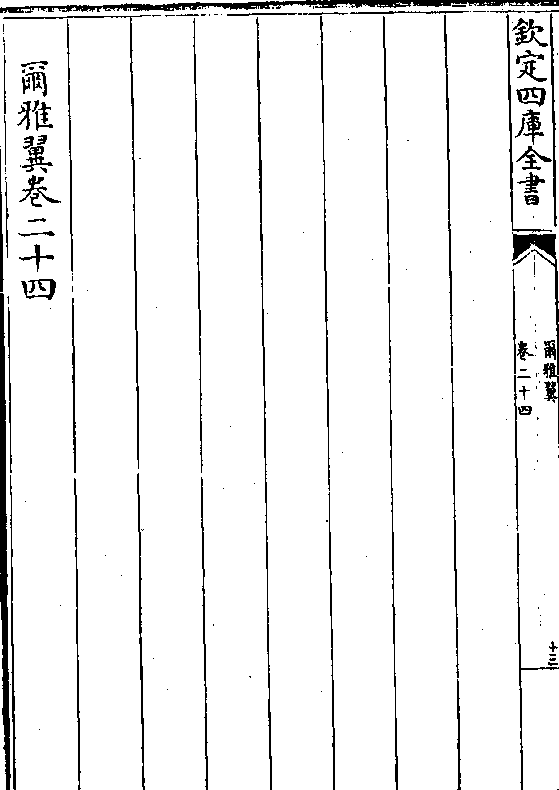 欽定四庫全書
爾雅翼
卷二十四
十三
爾雅翼卷二十四